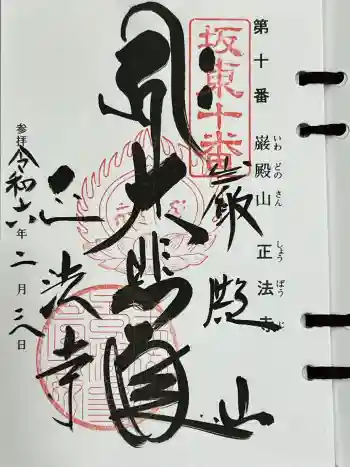 第十番 巌殿山 正法寺
いわ どの さん しょう ぼう じ
坂東十番
巌殿山
大悲殿
正法寺
参拝 令和六年二月六日